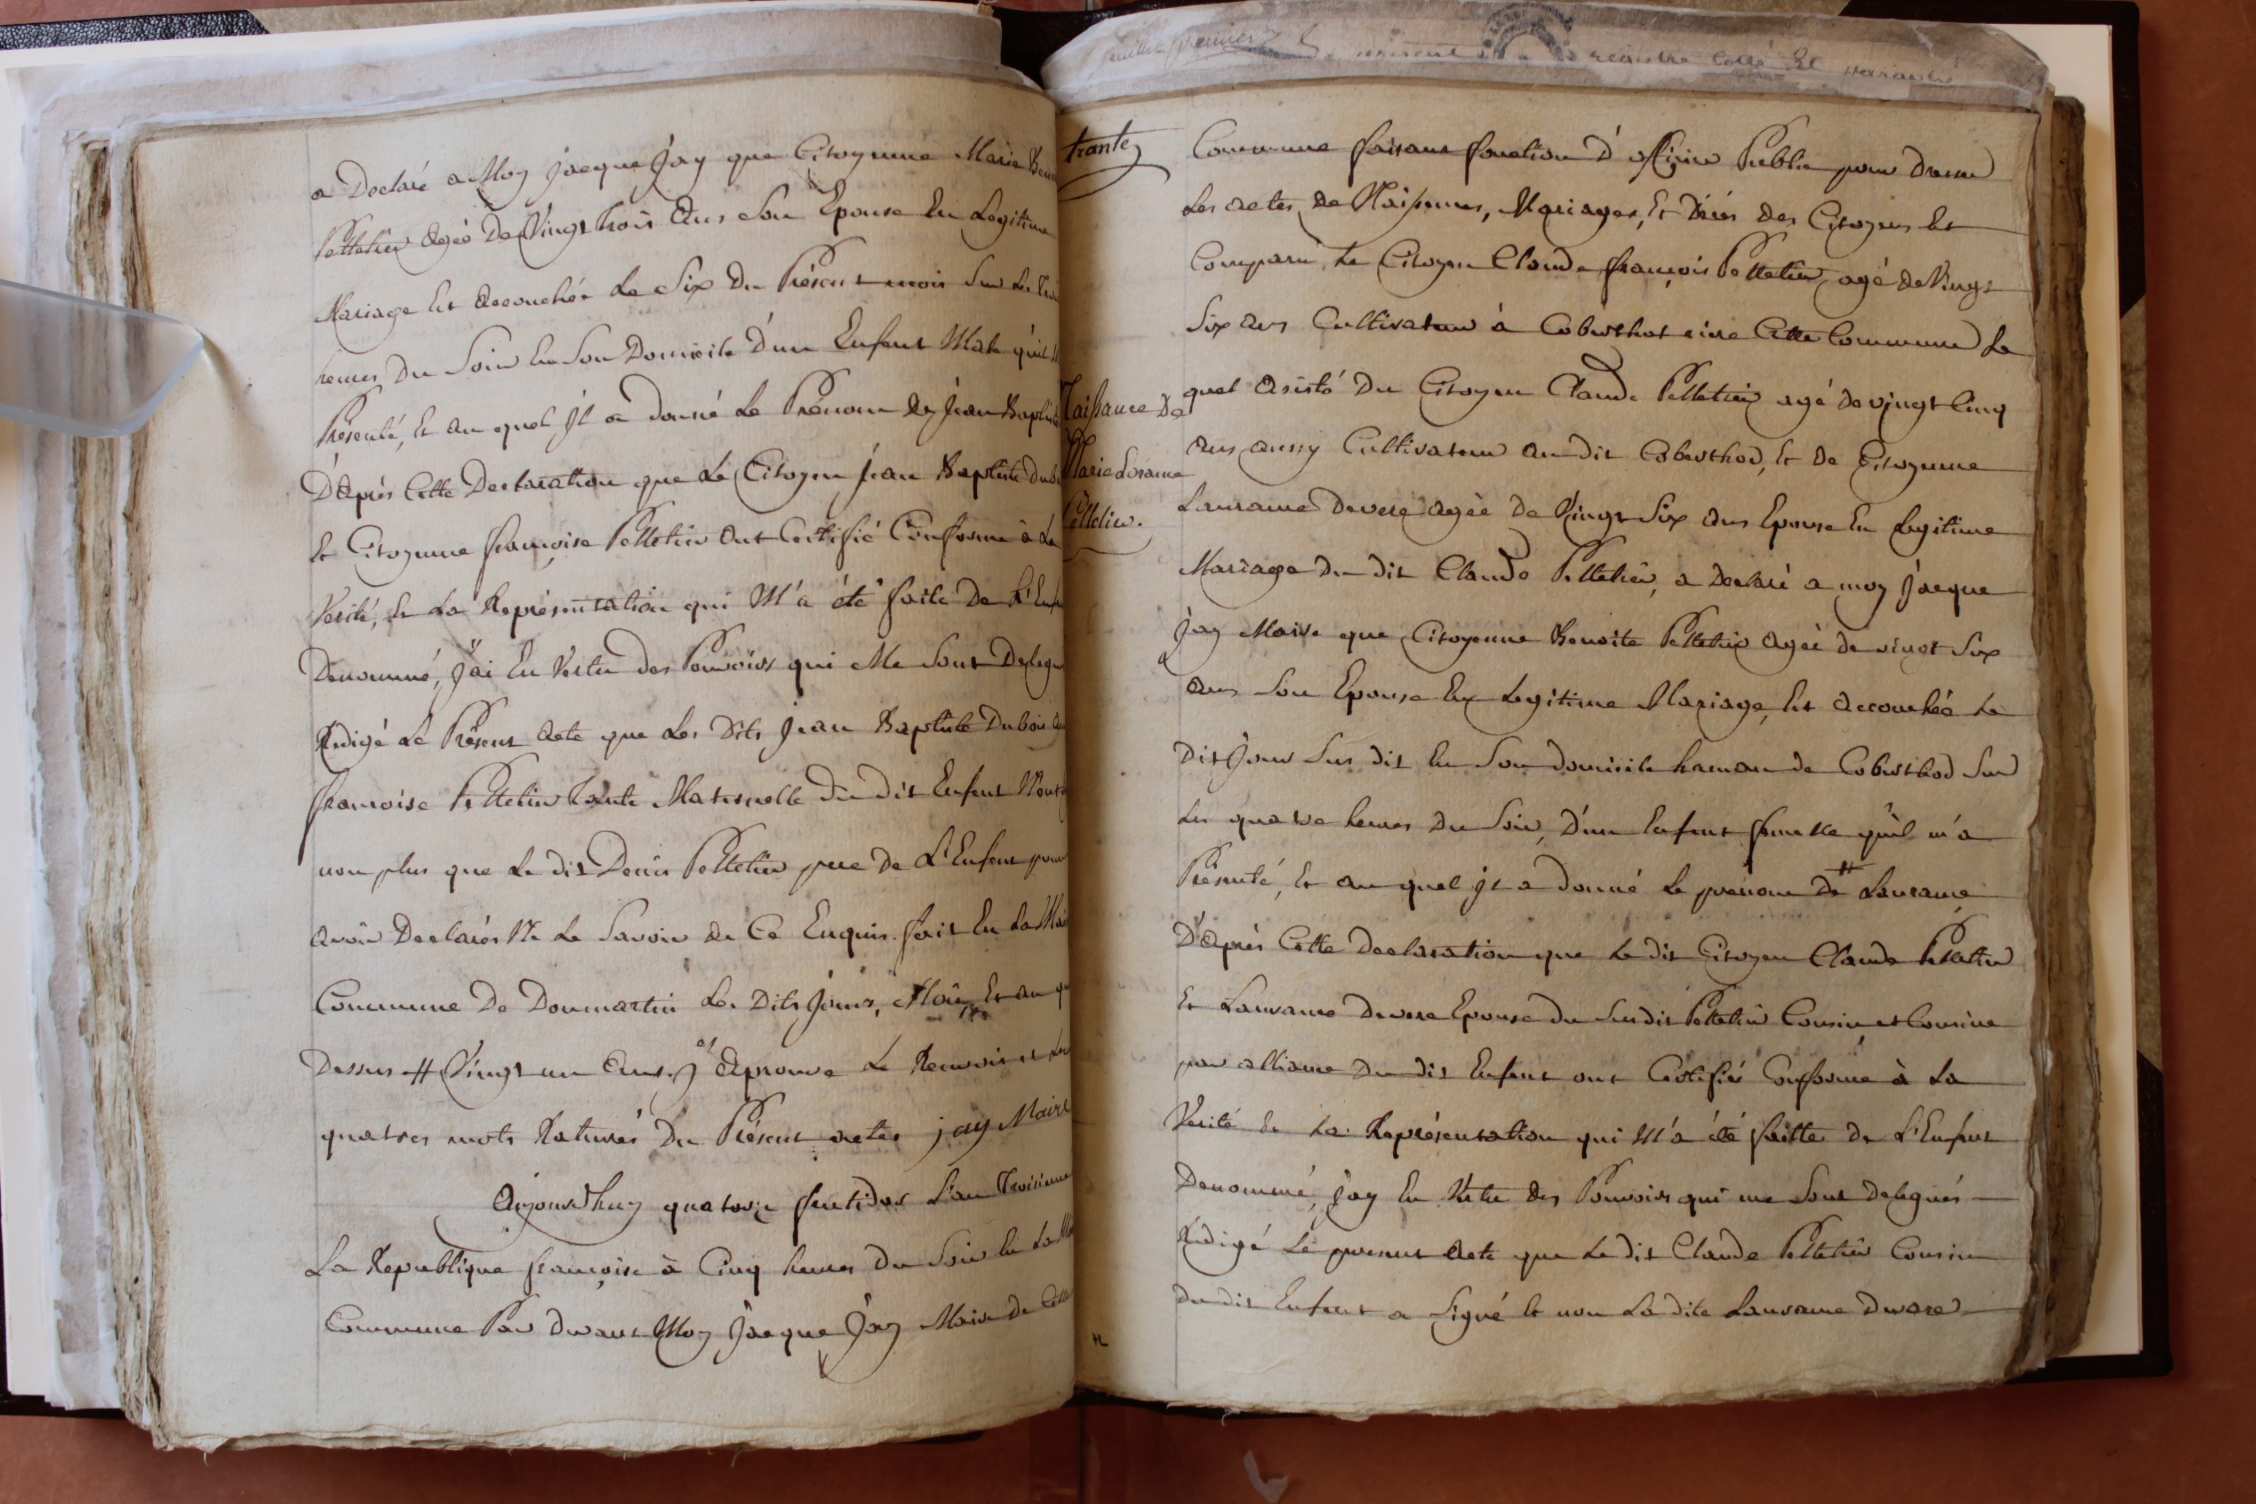 a Declaré a Moy jacque jay que Citoyenne Marie
Pelletier Agée De Vingt trois Ans Son Epouse En Legitime
Mariage Est Accouchée Le Six Du Présent mois Sur Les
heures Du Soir En Son Domicile D'un Enfant Male qu'il
Présenté, Et Au quel Jl a donné Le Prénom De Jean Baptiste
D'Après Cette Declaration que Le Citoyen Jean Baptiste
Et Citoyenne françoise Pelletier Ont Certifié Conforme à La
Verité, Et La Représentation qui M'a été faite De L'
Denommé, J'ai En Vertu des Pouvoirs qui Me Sont
Redigé Le Présent Acte que Les Dits Jean Baptiste Dubois
françoise Pelletier tante Maternelle Du dit Enfant
non plus que Le dit Denis Pelletier pere De L'Enfant pour
Avoir Declarés Ne Le Savoir de Ce Enquis. fait En La
Commune De Dommartin Les Dits Jours, Mois Et an
Dessus # Vingt un Ans. J'Aprouve Le Renvoi et Les
quatres mots Raturés Du Présent acte jay Maire
Aujourdhuy quatorze L'an Troisieme
La Republique françoise à Cinq heures Du Soir En La
Commune Par devant Moy Jacque Jay Maire de Cette
trante
Commune faisant fonction D'officier Public pour Dresser
Les actes de Naissances, Mariages, Et Décés Des Citoyens Est
Comparu, Le Citoyen Claude françois Pelletier agé de Vingt
Six ans Cultivateur à Coberthot rière Cette Commune Le
quel Assisté Du Citoyen Claude Pelletier agé de vjngt Cinq
Naissance De
ans aussy Cultivateur au dit Coberthod, Et De Citoyenne
Marie Losanne
Pelletier.
Lausanne Devere Agée De Vingt Six ans Epouse En Legitime
Mariage Du dit Claude Pelletier, a Declaré a moy Jacque
Jay Maire que Citoyenne Benoite Pelletier Agée de vingt Six
ans Son Epouse En Legitime Mariage, Est Accouchée Le
Dit Jour Sus dit En Son domicile hamau de Coberthod Sur
Les quatre heures Du Soir, D'un Enfant femelle qu'il m'a
Présenté, Et au quel Jl a Donné Le prenom De # Lausanne
D'Après Cette Declaration que Le dit Citoyen Claude Pelletier
Et Lausanne Devere Epouse du Susdit Pelletier Cousin et Cousine
par alliance Du dit Enfant ont Certifiés Conforme à La
Verité Et La Représentation qui M'a été faitte De L'Enfant
Denommé, J'ay En Vertu Des Pouvoirs qui me Sont delegués
Redigé Le present Acte que Le dit Claude Pelletier Cousin
du dit Enfant a Signé Et non La dite Lausanne